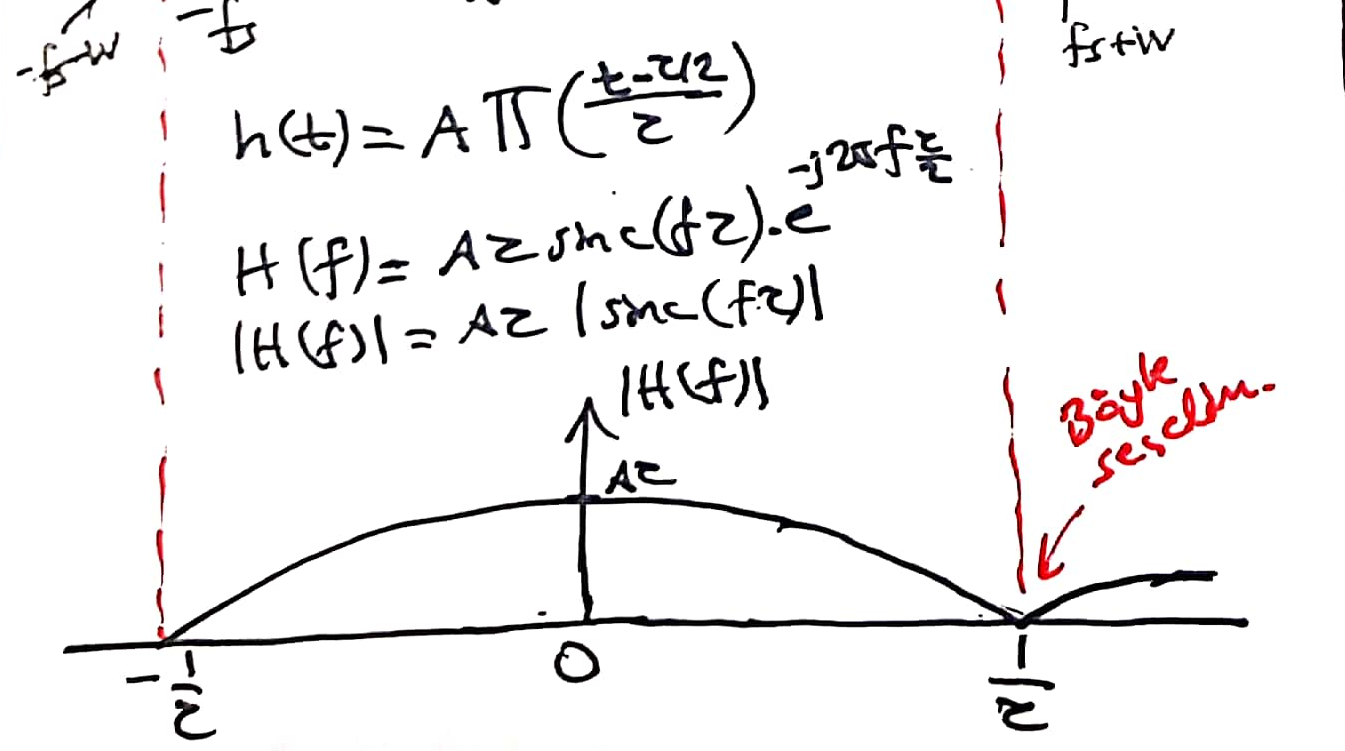 -fs-W
-fs
fs+W
h(t) = A Π((t-τ/2)/τ)
H(f) = Aτ sinc(fτ).e^(-j2πf τ/2)
|H(f)| = Aτ |sinc(fτ)|
|H(f)|
Aτ
Böyle
seçelim.
-1/τ
0
1/τ